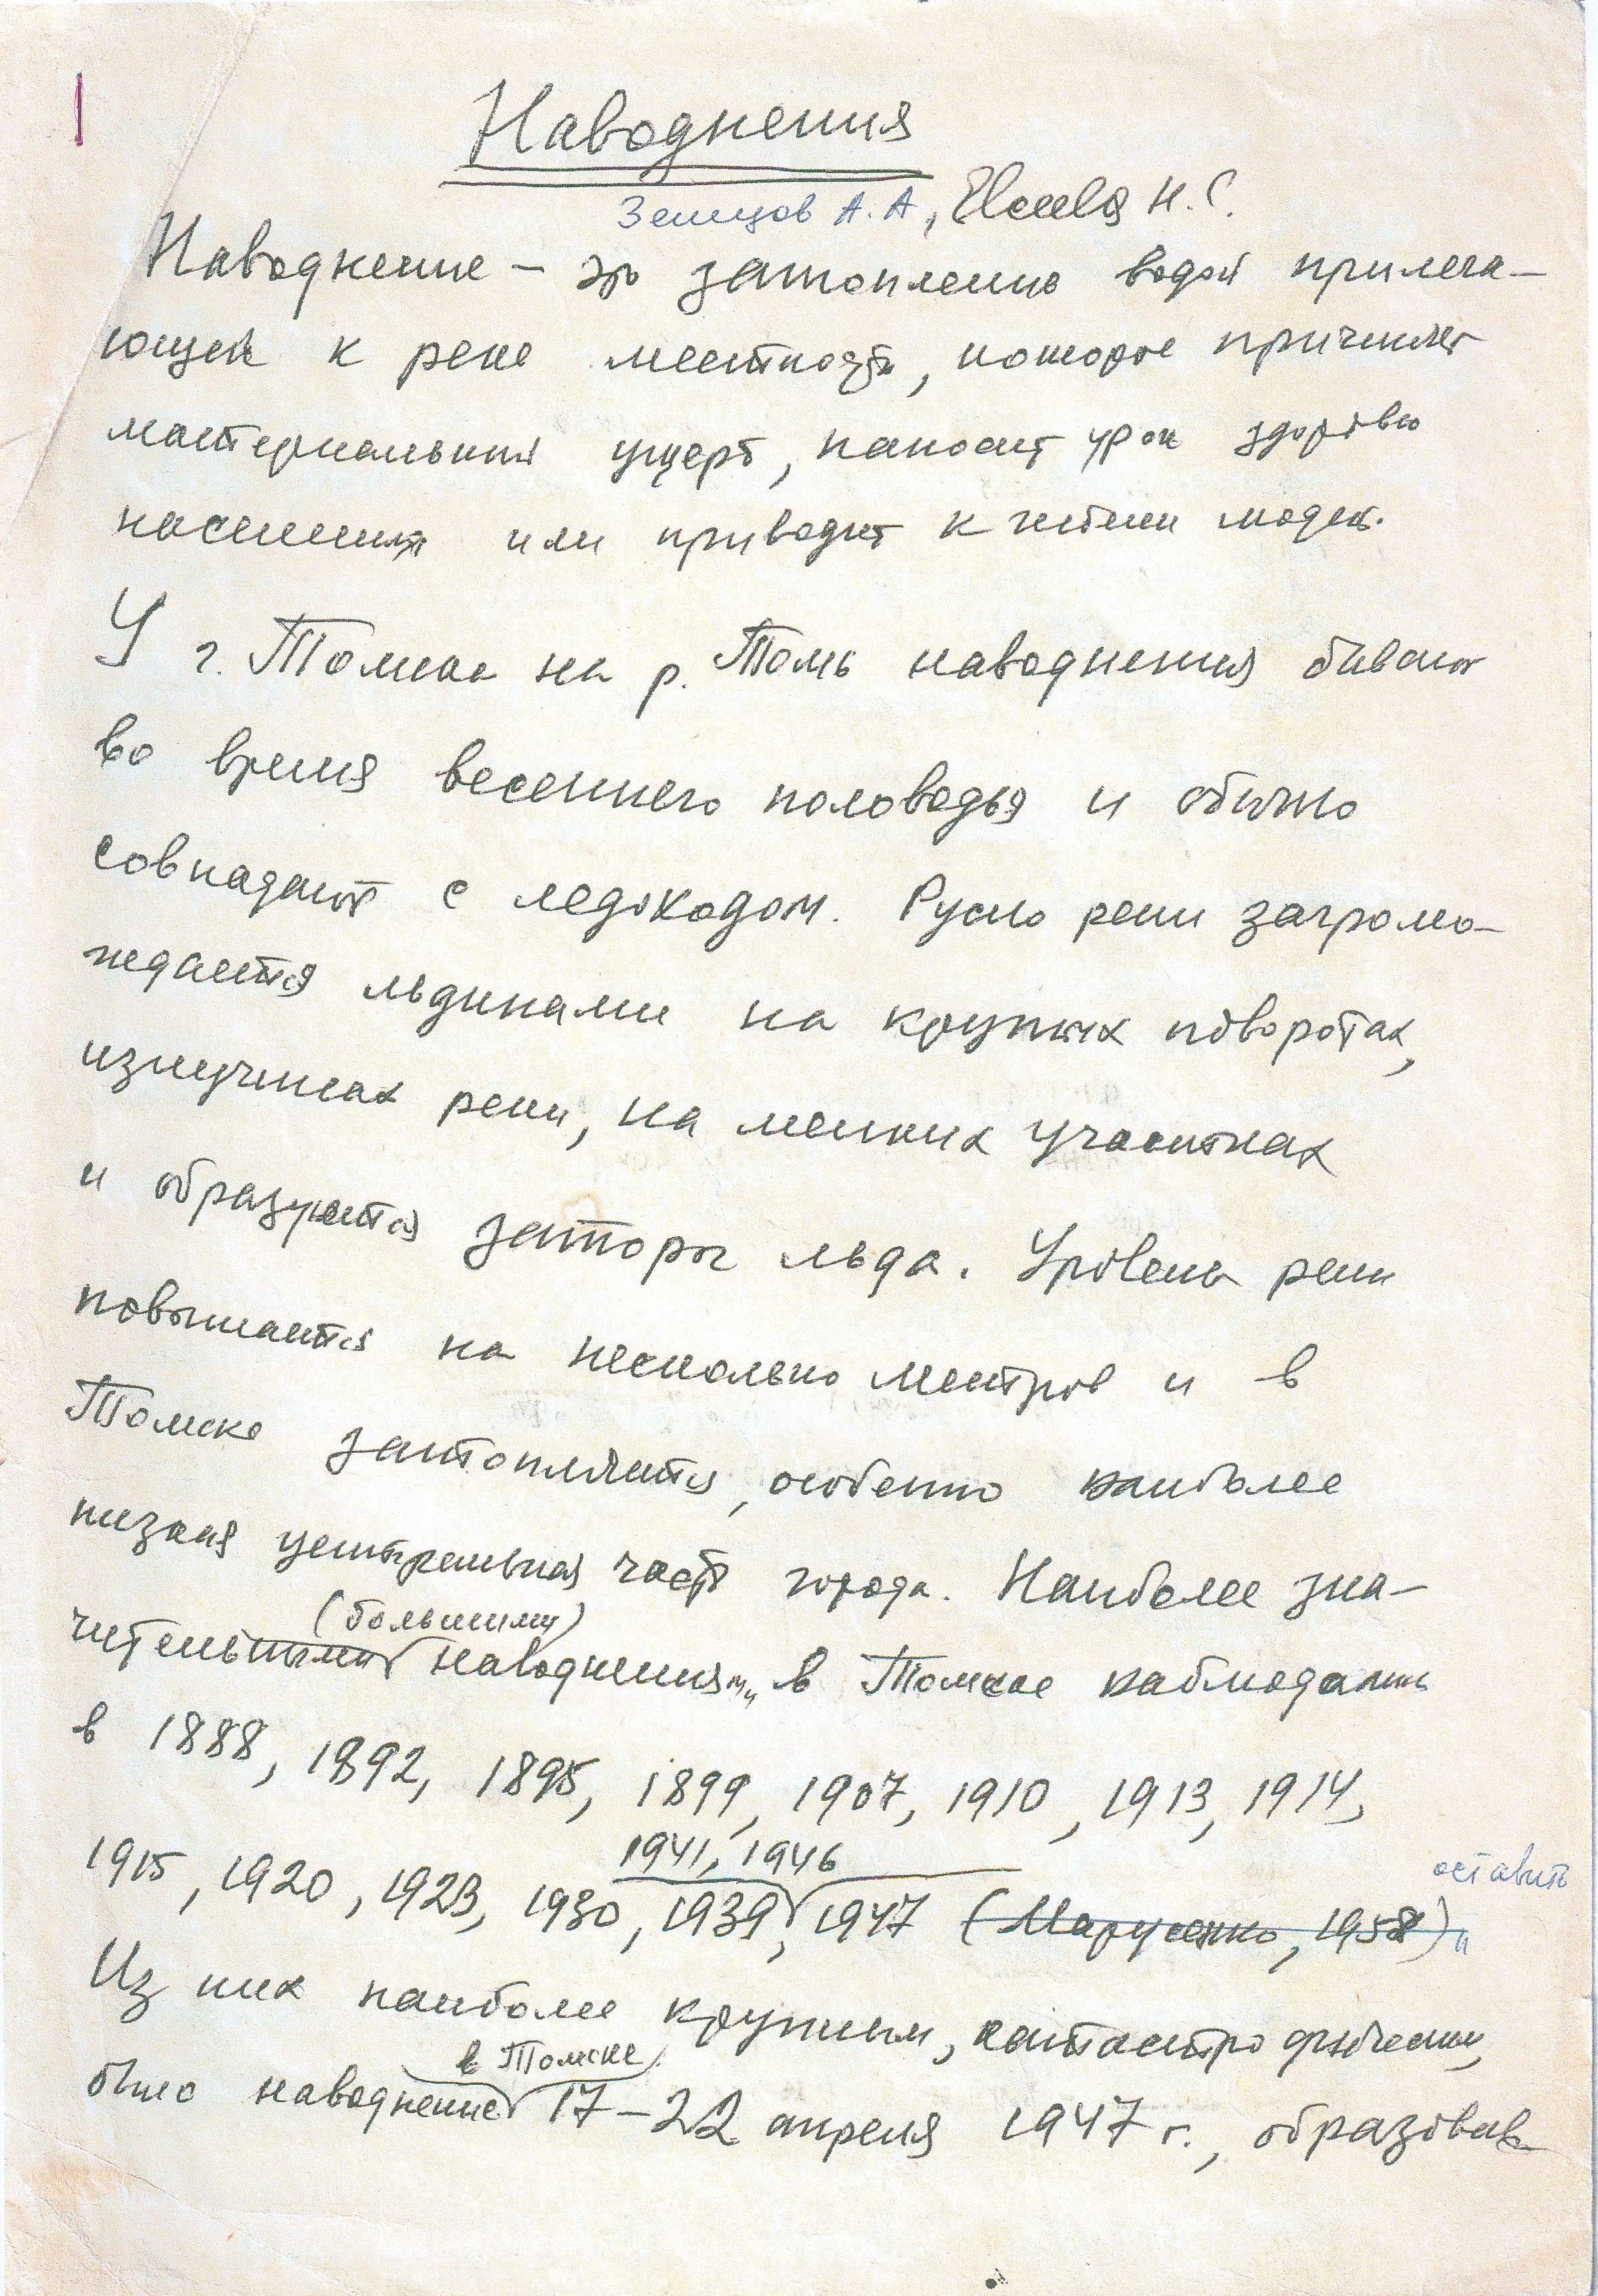 Наводнения
Земцов А.А, Евсеева Н.С.
Наводнение – это затопление водой прилега-
ющей к реке местности, которое причиняет
материальный ущерб, наносит урон здоровью
населения или приводит к гибели людей.
У г. Томска на р. Томь наводнения бывают
во время весеннего половодья и обычно
совпадают с ледоходом. Русло реки загромо-
ждается льдинами на крупных поворотах,
излучинах реки, на мелких участках
и образуются заторы льда. Уровень реки
повышается на несколько метров и в
Томске затопляется, особенно наиболее
низкая центральная часть города. Наиболее зна-
(большими)
чительными наводнениями в Томске наблюдались
в 1888, 1892, 1895, 1899, 1907, 1910, 1913, 1914,
1941, 1946
оставить
1915, 1920, 1923, 1930, 1939, 1947 (Марусенко, 1958)
Из них наиболее крупным, катастрофическим,
в Томске
было наводнение 17–22 апреля 1947 г., образовав